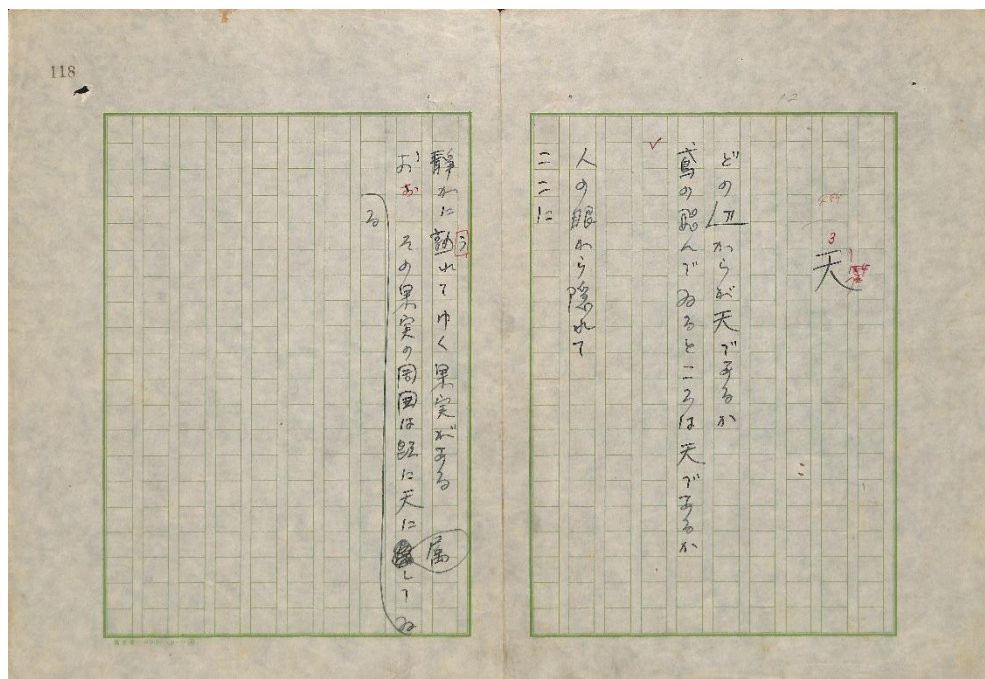 118
天
どの辺からが天であるか
鳶の飛んでゐるところは天であるか
人の眼から隠れて
ここに
静かに熟れてゆく果実がある
おお その果実の周囲は既に天に属してゐ
る